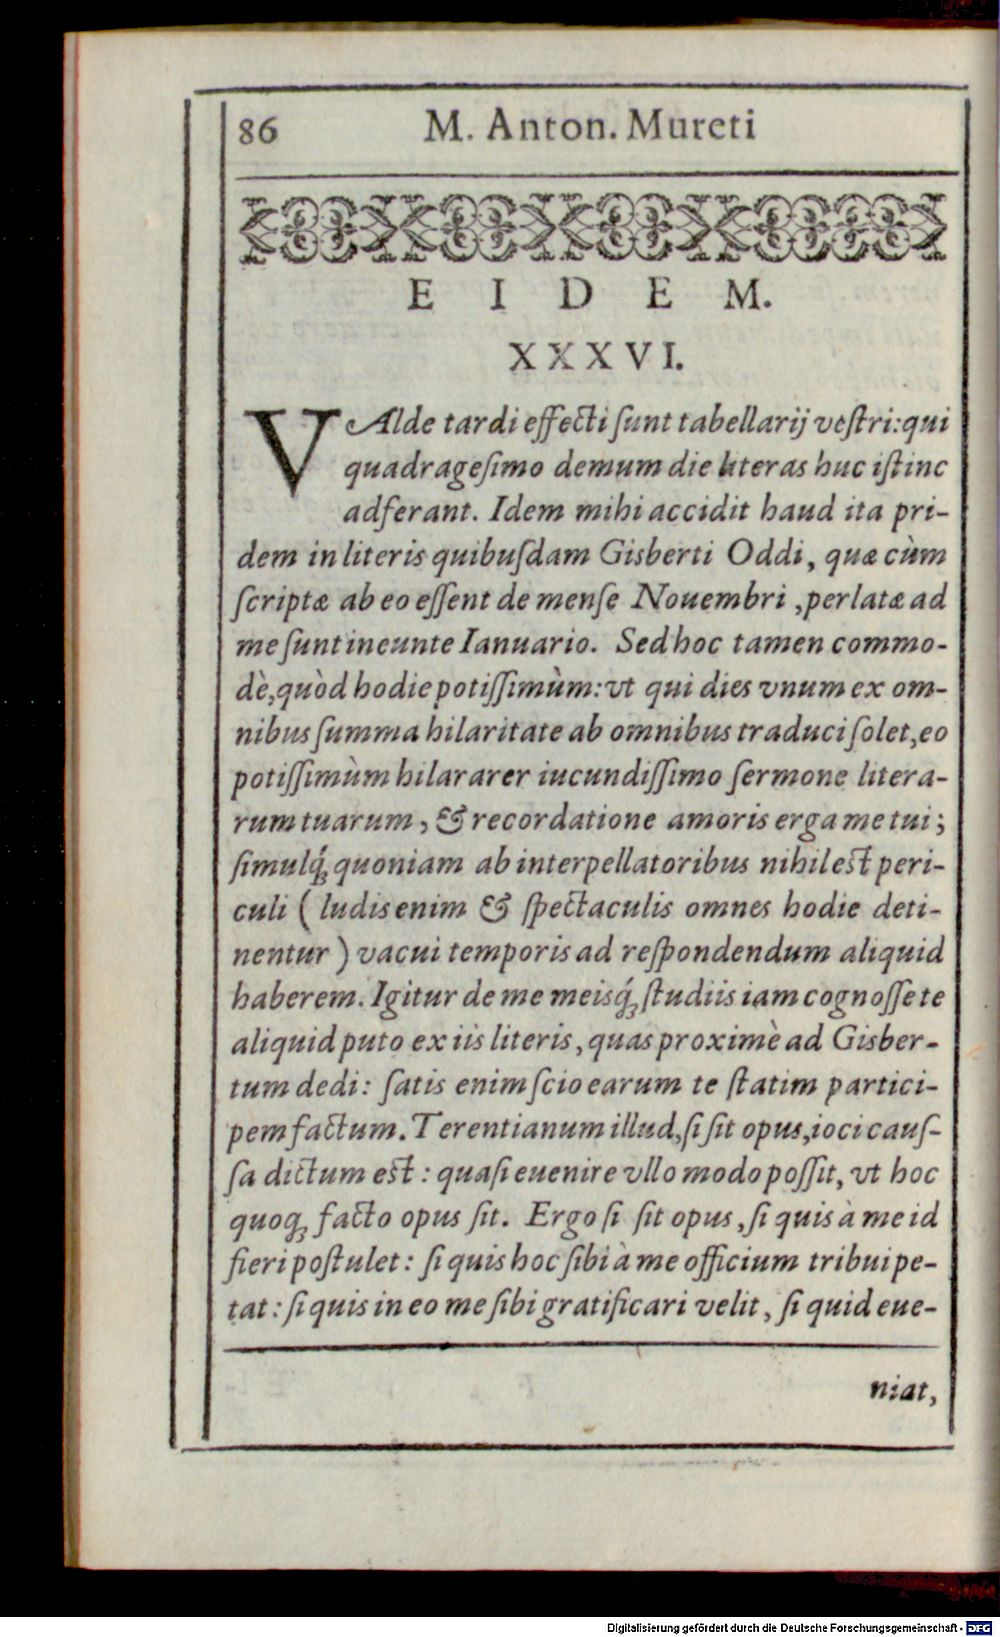 86 M. Anton. Mureti
EIDEM.
XXXVI.
VAlde tardi effecti ſunt tabellarij veſtri: qui
quadrageſimo demum die literas huc iſtinc
adferant. Idem mihi accidit haud ita pri-
dem in literis quibuſdam Gisberti Oddi, quæ cùm
ſcriptæ ab eo eſſent de menſe Nouembri, perlatæ ad
me ſunt ineunte Ianuario. Sed hoc tamen commo-
dè, quòd hodie potiſſimùm: vt qui dies vnum ex om-
nibus ſumma hilaritate ab omnibus traduci ſolet, eo
potiſſimùm hilararer iucundiſſimo ſermone litera-
rum tuarum, & recordatione amoris erga me tui;
ſimulq́; quoniam ab interpellatoribus nihil est peri-
culi (ludis enim & ſpectaculis omnes hodie deti-
nentur) vacui temporis ad reſpondendum aliquid
haberem. Igitur de me meisq́; ſtudiis iam cognoſſe te
aliquid puto ex iis literis, quas proximè ad Gisber-
tum dedi: ſatis enim ſcio earum te ſtatim partici-
pem factum. Terentianum illud, ſi ſit opus, ioci cauſ-
ſa dictum est: quaſi euenire vllo modo poſſit, vt hoc
quoq; facto opus ſit. Ergo ſi ſit opus, ſi quis à me id
fieri poſtulet: ſi quis hoc ſibi à me officium tribui pe-
tat: ſi quis in eo me ſibi gratificari velit, ſi quid eue-
niat,
Digitalisierung gefördert durch die Deutsche Forschungsgemeinschaft - DFG